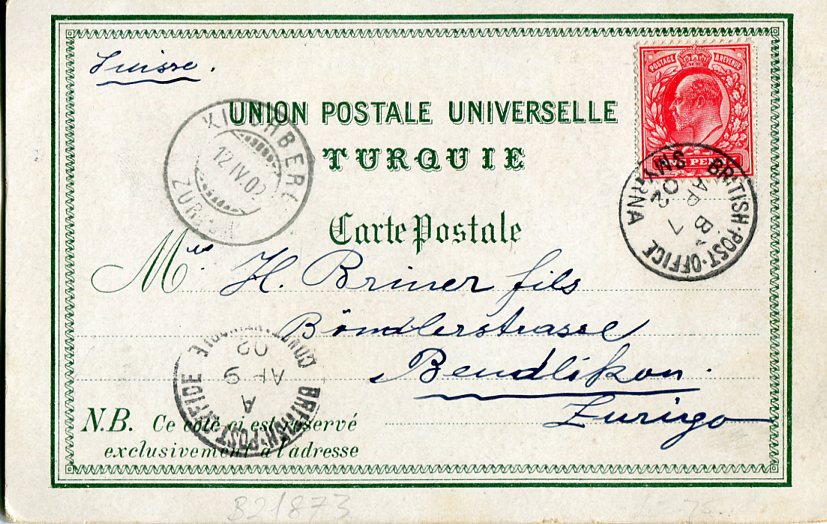 Suisse.
POSTAGE & REVENUE
ONE PENNY
UNION POSTALE UNIVERSELLE
TURQUIE
Carte Postale
KILCHBERG
12 IV 02
ZÜRICH
BRITISH·POST·OFFICE
B
AP 7
02
SMYRNA
H. Briner fils
Böndlerstrasse
Bendlikon.
Zurigo
BRITISH·POST·OFFICE
A
AP 9
02
CONSTANTINOPLE
N.B. Ce côté ci est réservé
exclusivement à l'adresse
B21873